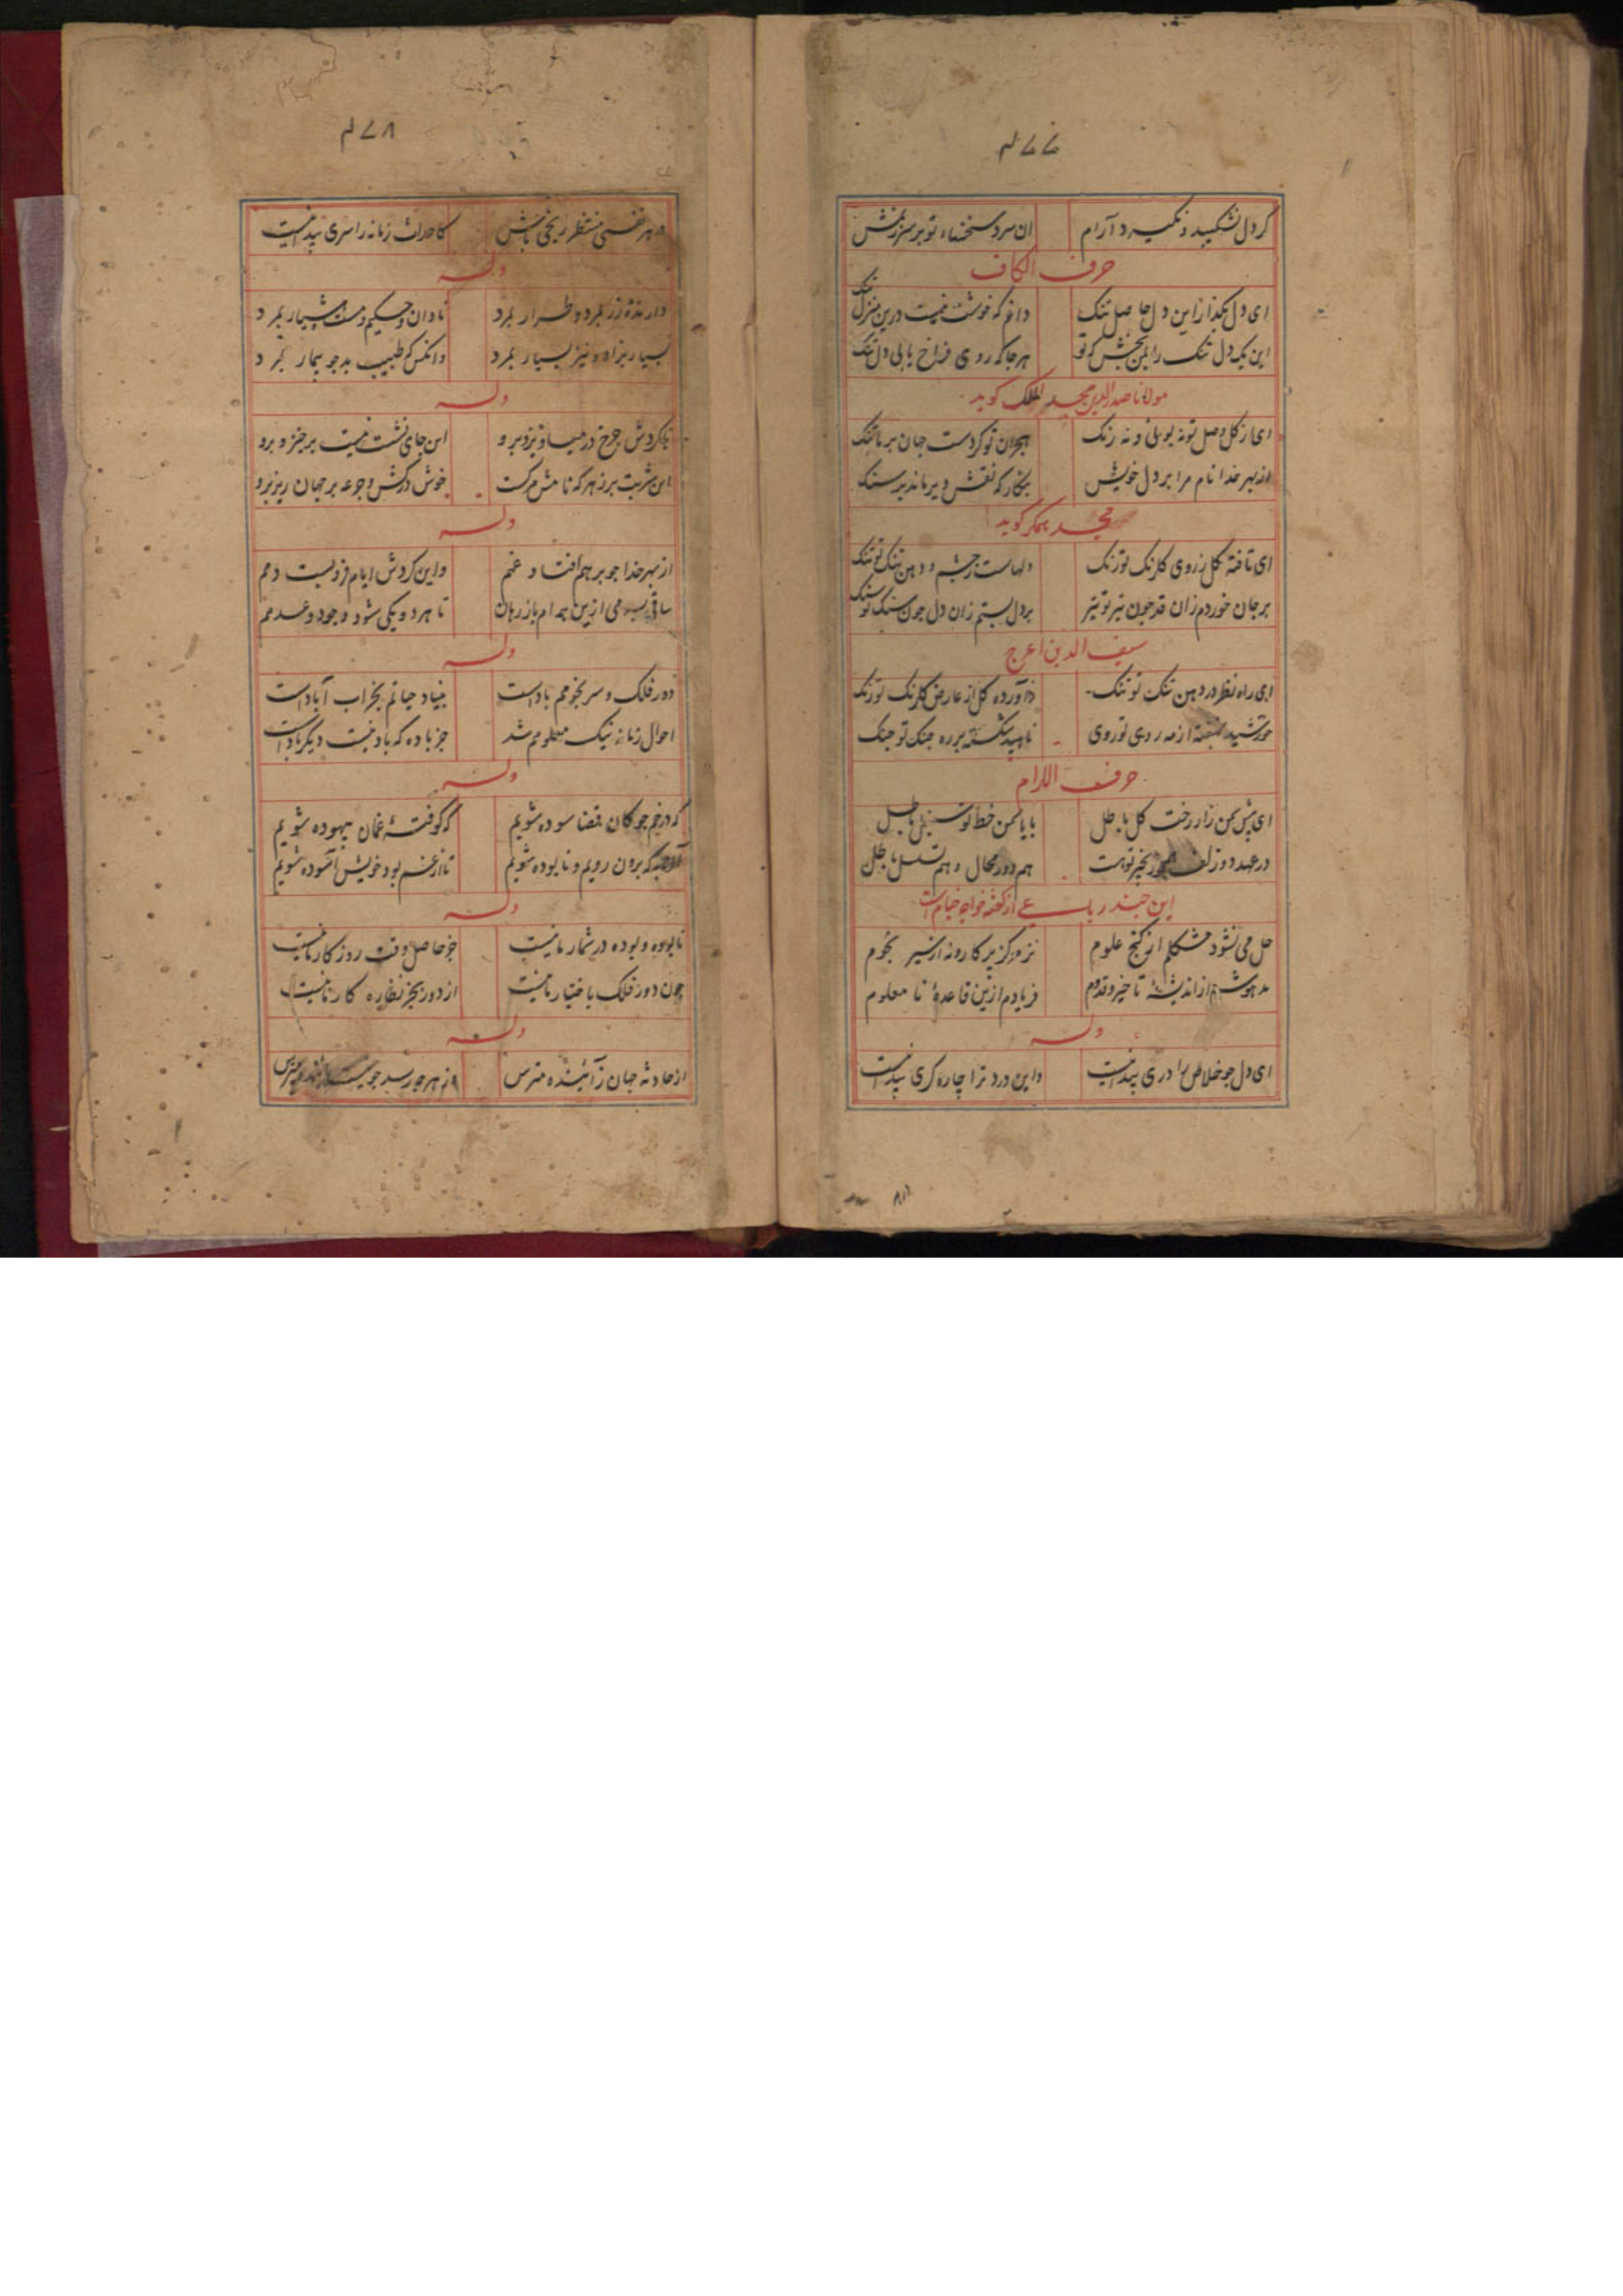 ۴۷۷
کر دل نشکیبد و نکیرد آرام
ان سرد سخنهاء تو بر سر زنمش
حرف الکاف
ای دل بکذار این دل حاصل تنک
دانم که خوشت نیست درین منزل تنک
این یک دل تنک را بمن بخش که تو
هر جا که روی فراخ یابی دل تنک
مولانا صدرالدین مجد الملک کوید
ای از کل وصل تو نه بوئی و نه رنک
هجران تو کردست جهان بر ما تنک
از بهر خدا نام مرا بر دل خویش
بنکار که نقش دیر ماند بر سنک
مجد همکر کوید
ای تافته کل ز روی کلرنک تو رنک
دلهاست ز چشم و دهن تنک تو تنک
بر جان خوردم زان قد چون تیر تو تیر
بر دل بستم زان دل چون سنک تو سنک
سیف الدین اعرج
ای راه نظر در دهن تنک تو تنک
آورده کل از عارض کلرنک تو رنک
خورشید نهفته از مه روی تو روی
ناهید شکسته بر ره جنک تو جنک
حرف اللام
ای پیش من زار رخت کل باطل
با یاسمن خط تو سنبل باطل
در عهد دو زلف
هم دور محال و هم تسلسل باطل
این چند رباعی از کفته خواجه خیام است
حل می نشود مشکلم از کنج علوم
نز مرکز پرکار و نه از سیر نجوم
مدهوش شدم از اندیشهٔ تاخیر و قدوم
فریادم ازین قاعدهٔ نا معلوم
وله
ای دل چو خلاص را دری پیدا نیست
واین درد ترا چاره کری پیدا نیست
۴۷۸
در هر نفسی منتظر ریحی باش
کاحداث زمانه را سری پیدا نیست
وله
دارندهٔ زر بمرد و طرار بمرد
نادان و حکیم و مست و هشیار بمرد
بسیار بزاد و نیز بسیار بمرد
وانکس که طبیب بد چو بیمار بمرد
وله
با کردش چرخ در میاویز و برو
این جای نشست نیست برخیز و برو
این شربت پر زهر که نامش مرکست
خوش درکش و جرعه بر جهان ریز و برو
وله
از بهر خدا چو بر هم افتاد غمم
واین کردش ایام فرو بست دمم
ساقی بده می ازین همه ام باز رهان
تا هر دو یکی شود وجود و عدمم
وله
دور فلک و سیر نجومم بادست
بنیاد حیاتم بخراب آبادست
احوال زمانه نیک معلومم شد
جز باده که باد نیست دیکر بادست
وله
که در خم چوکان قضا سوده شویم
که کوفتهٔ غمان بیهوده شویم
آن به که برون رویم و نابوده شویم
تا از غم بود خویش آسوده شویم
وله
نابوده و بوده در شمار ما نیست
جز حاصل وقت روزکار ما نیست
چون دور فلک باختیار ما نیست
از دور بجز نظاره کار ما نیست
وله
از حادثه جهان زاینده مترس
وز هر چه رسد چو نیست پاینده مترس